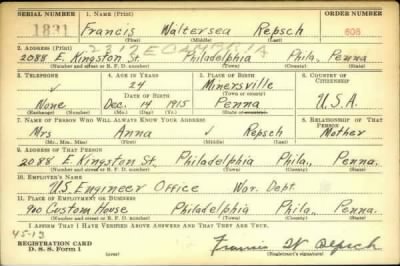 SERIAL NUMBER 1. NAME (Print) ORDER NUMBER
1831 Francis Waltersea Repsch 608
(First) (Middle) (Last)
2. ADDRESS (Print)
2088 E. Kingston St. Philadelphia Phila. Penna
(Number and street or R. F. D. number) (Town) (County) (State)
3. TELEPHONE 4. AGE IN YEARS 5. PLACE OF BIRTH 6. COUNTRY OF CITIZENSHIP
24 Minersville
(Town or county)
None Dec. 14 1915 Penna U.S.A.
(Exchange) (Number) (Mo.) (Day) (Yr.) (State or country)
7. NAME OF PERSON WHO WILL ALWAYS KNOW YOUR ADDRESS 8. RELATIONSHIP OF THAT PERSON
Mrs Anna Repsch Mother
(Mr., Mrs., Miss) (First) (Middle) (Last)
9. ADDRESS OF THAT PERSON
2088 E. Kingston St. Philadelphia Phila. Penna.
(Number and street or R. F. D. number) (Town) (County) (State)
10. EMPLOYER'S NAME
U.S. Engineer Office War. Dept.
11. PLACE OF EMPLOYMENT OR BUSINESS
900 Custom House Philadelphia Phila. Penna.
(Number and street or R. F. D. number) (Town) (County) (State)
I AFFIRM THAT I HAVE VERIFIED ABOVE ANSWERS AND THAT THEY ARE TRUE.
45-13
REGISTRATION CARD
D. S. S. Form 1 Francis W Repsch
(Registrant's signature)